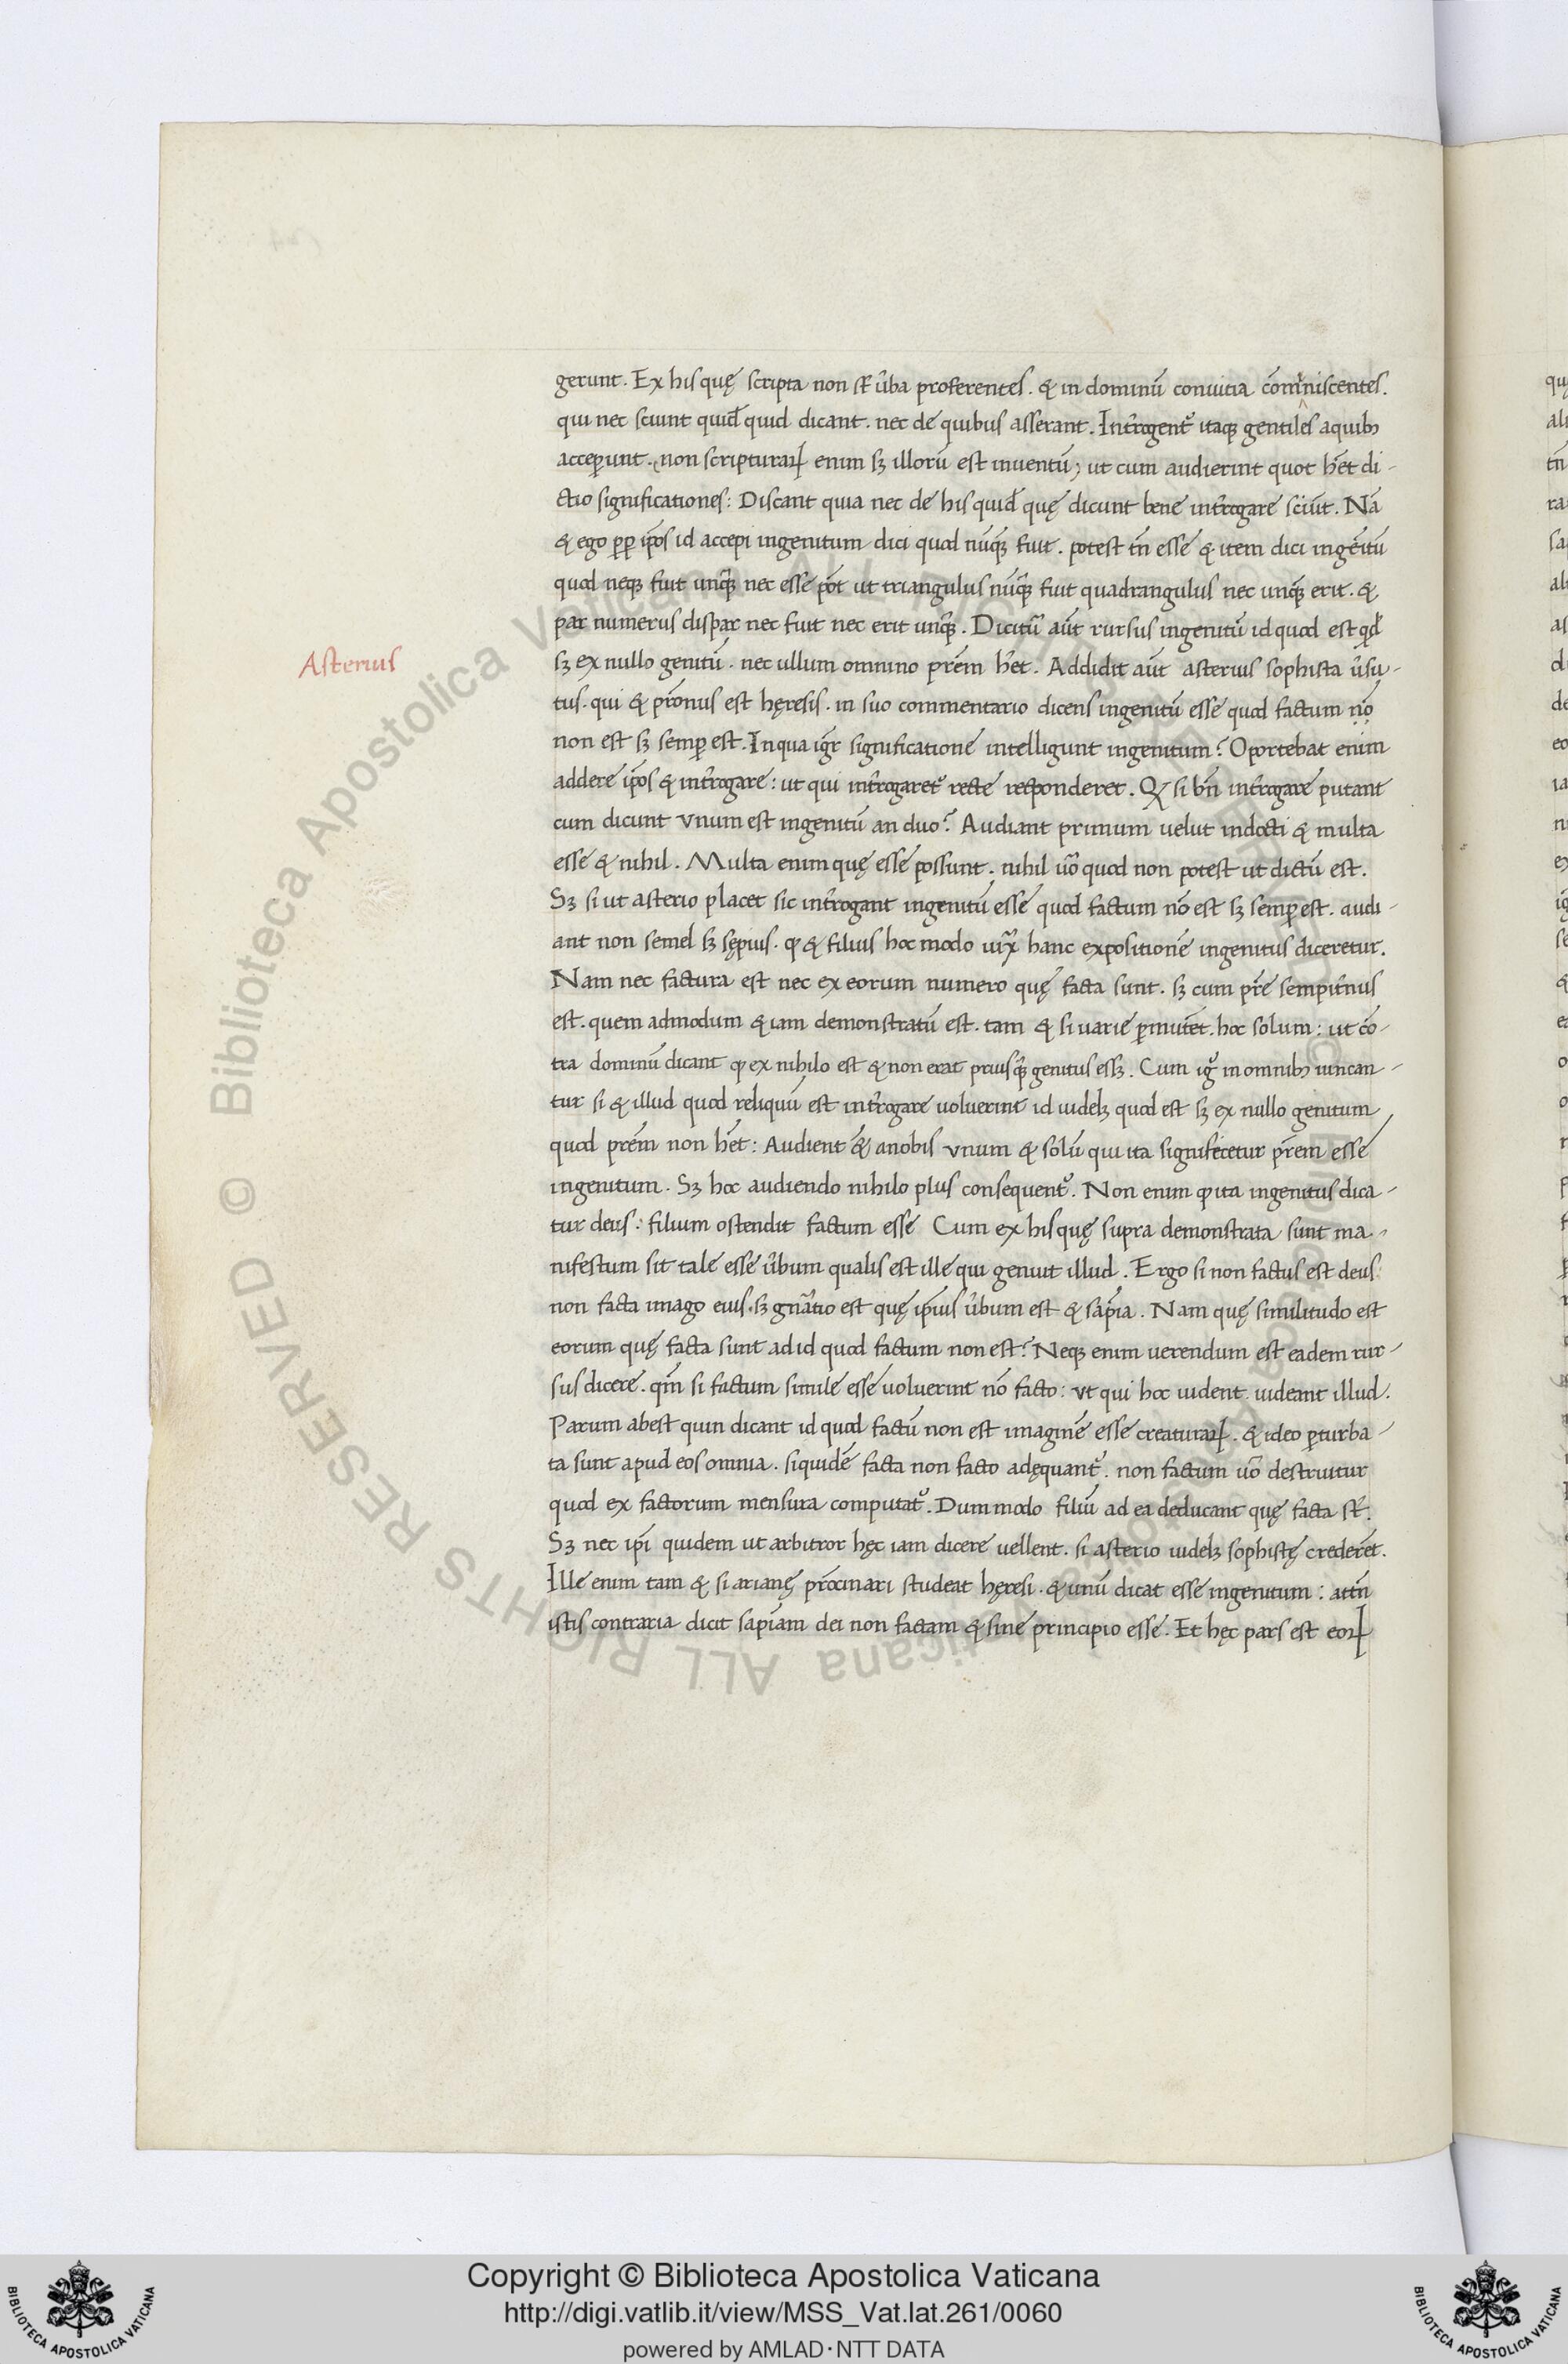 gerunt. Ex his quę scripta non sŧ ûba proferentes. & in dominũ conuitia com̃iniscentes.
qui nec sciunt quid̃ quid dicant. nec de quibus asserant. Int̃rogent᷑ itaq; gentiles a quib;
acceperunt. non scripturaꝝ enim sꝫ illorũ est inuentũ; ut cum audierint quot h̃et di-
ctio significationes: Discant quia nec de his quid̃ quę dicunt bene int̃rogare sciũt. Nã
& ego ꝓpṕ ip̃os id accepi ingenitum dici quod nũq̃ꝫ fuit. potest tñ esse & item dici ingẽitũ
quod neq; fuit unq̃ꝫ nec esse põt ut triangulus nũq̃ꝫ fuit quadrangulus nec unq̃ꝫ erit. &
par numerus dispar nec fuit nec erit unq̃ꝫ. Dicitũ aũt rursus ingenitũ id quod est qd̃
Asterius
sꝫ ex nullo genitũ. nec ullum omnino pr̃em h̃et. Addidit aũt asterius sophista ûsu-
tus. qui & pr̃onus est hęresis. in suo commentario dicens ingenitũ esse quod factum nõ
non est sꝫ semꝑ est. In qua igr̃ significatione intelligunt ingenitum? Oportebat enim
addere ip̃os & int̃rogare: ut qui int̃rogaret᷑ recte responderet. Qꝫ si bñ int̃rogare putant
cum dicunt vnum est ingenitũ an duo? Audiant primum uelut indocti & multa
esse & nihil. Multa enim quę esse possunt. nihil uõ quod non potest ut dictũ est.
Sꝫ si ut asterio placet sic int̃rogant ingenitũ esse quod factum nõ est sꝫ semꝑ est. audi-
ant non semel sꝫ sępius. ꝙ & filius hoc modo iux̃ hanc expositionẽ ingenitus diceretur.
Nam nec factura est nec ex eorum numero quę facta sunt. sꝫ cum pr̃e sempiternus
est. quem admodum & iam demonstratũ est. tam & si uarie ꝑmutẽt. hoc solum: ut cõ-
tra dominũ dicant ꝙ ex nihilo est & non erat priusq̃ꝫ genitus essꝫ. Cum ig̃ in omnib; uincan-
tur si & illud quod reliquũ est int̃rogare uoluerint id uidelꝫ quod est sꝫ ex nullo genitum
quod pr̃em non h̃et: Audient & a nobis vnum & solũ qui ita significetur pr̃em esse
ingenitum. Sꝫ hoc audiendo nihilo plus consequent᷑. Non enim ꝙ ita ingenitus dica-
tur deus: filium ostendit factum esse Cum ex his quę supra demonstrata sunt ma-
nifestum sit tale esse ûbum qualis est ille qui genuit illud. Ergo si non factus est deus
non facta imago eius. sꝫ gñatio est quę ip̃ius ûbum est & sap̃ia. Nam quę similitudo est
eorum quę facta sunt ad id quod factum non est? Neq; enim uerendum est eadem rur-
sus dicere. qm̃ si factum simile esse uoluerint nõ facto: vt qui hoc uident. uideant illud.
Parum abest quin dicant id quod factũ non est imaginẽ esse creaturaꝝ. & ideo ꝑturba-
ta sunt apud eos omnia. siquidẽ facta non facto adęquant᷑. non factum uõ destruitur
quod ex factorum mensura computat᷑. Dummodo filiũ ad ea deducant quę facta sŧ.
Sꝫ nec ip̃i quidem ut arbitror hęc iam dicere uellent. si asterio uidelꝫ sophistę crederẽt.
Ille enim tam & si arianę pr̃ocinari studeat hęresi. & unũ dicat esse ingenitum: attñ
istis contraria dicit sap̃iam dei non factam & sine principio esse. Et hęc pars est eoꝝ
Copyright © Biblioteca Apostolica Vaticana
http://digi.vatlib.it/view/MSS_Vat.lat.261/0060
powered by AMLAD·NTT DATA
BIBLIOTECA APOSTOLICA VATICANA
BIBLIOTECA APOSTOLICA VATICANA
© Biblioteca Apostolica Vaticana ALL RIGHTS RESERVED